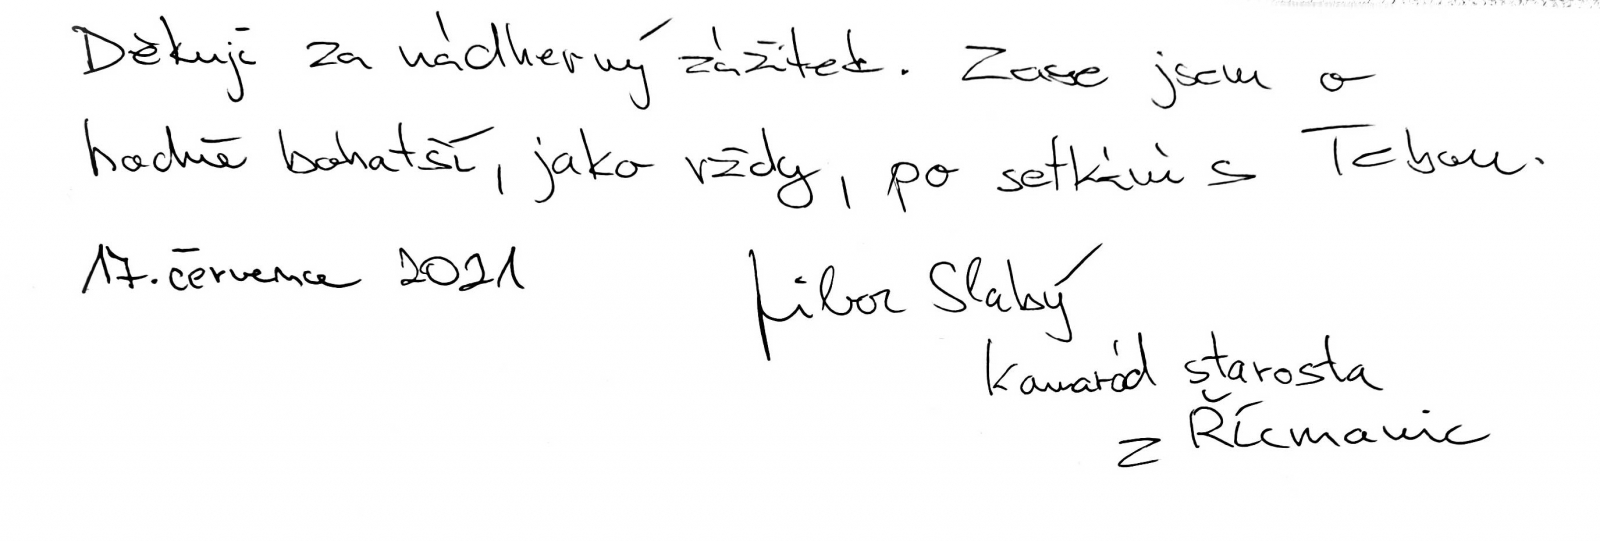 Děkuji za nádherný zážitek. Zase jsem o
hodně bohatší, jako vždy, po setkání s Tebou.
17. července 2021
Libor Slabý
kamarád starosta
z Řícmanic